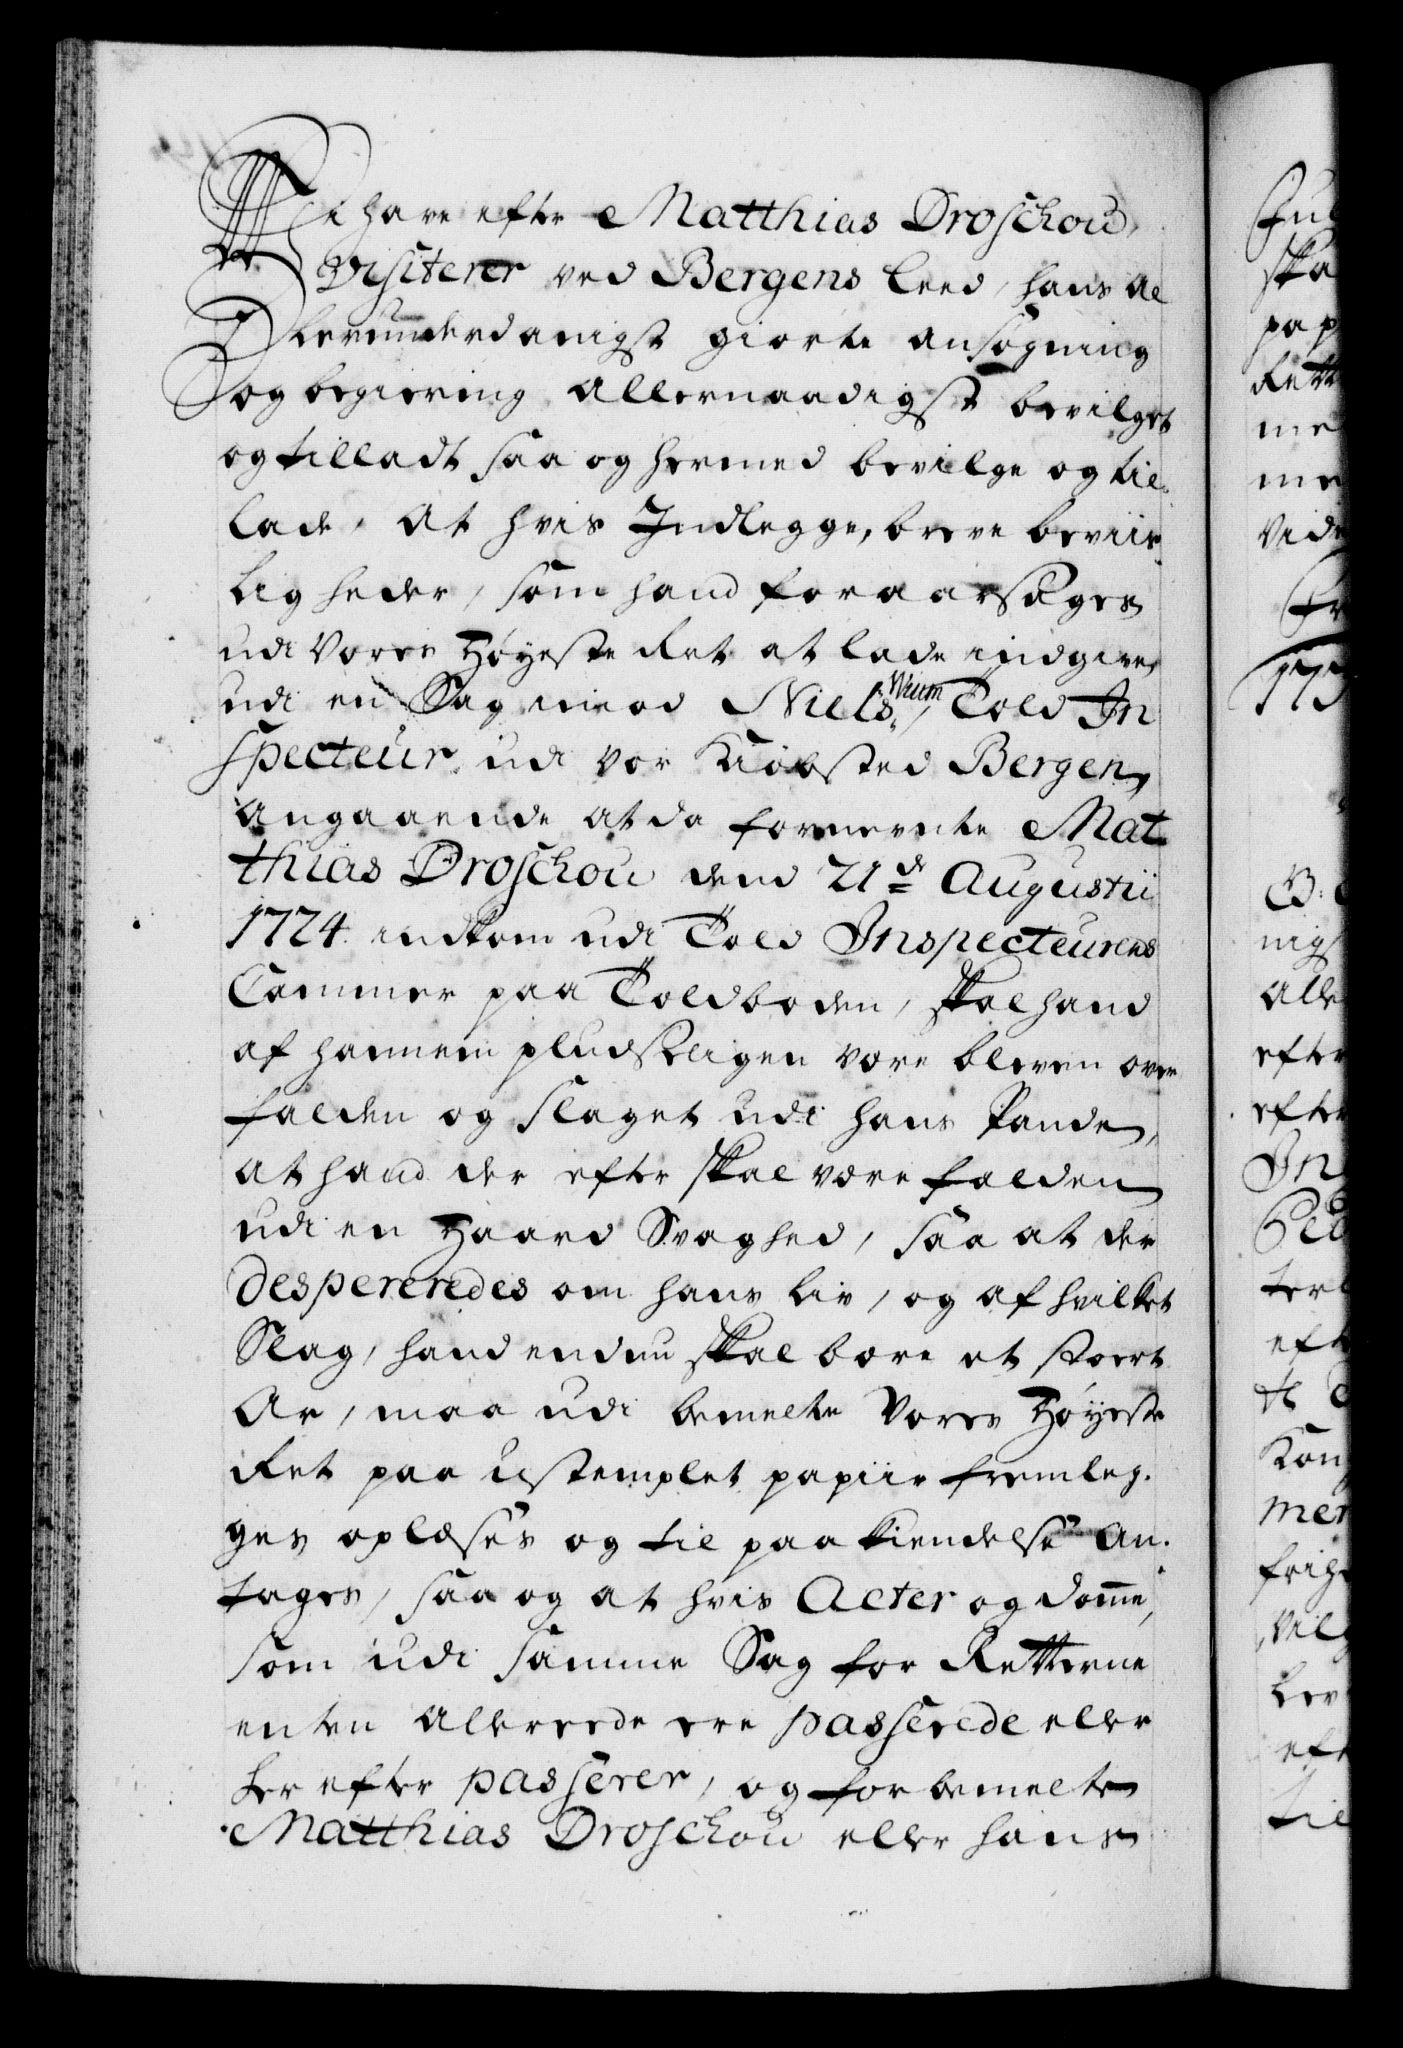 We have efter Matthias Droschou,
Visiterer ved Bergens leed, hans al
lerunderdanigst giorte ansøgning
og begiering allernaadigst bevilget
og tilladt saa og hermed bevilge og til-
lade, at hvis Indlegge, breve beviis-
ligheder, som hand foraarsages
udi Vores Høyeste Ret at lade indgive,
udi en Sag imod Niels Wium, Told In
specteur udi vor Kiøbsted Bergen,
angaaende at da formeente Mat-
thias Droschou dend 21de Augustii
1724 indkom udi Told Inspecteurens
Cammer paa Toldboden, skal hand
af hannem pludseligen være bleven over
falden og slaget udi hans Pande,
at hand der efter skal være falden
udi en Haard Svaghed, saa at der
despereredes om hans liv, og af hvilket
Slag, hand endnu skal bære et stoert
Ar, maa udi bemelte Vores Høyeste
Ret paa ustemplet papiir fremleg-
ges oplæses og til paakiendelse an-
tages, saa og at hvis Acter og domme,
som udi samme Sag for Retterne
enten allereede ere passerede eller
her efter passerer, og forbemelte
Matthias Droschou eller hans